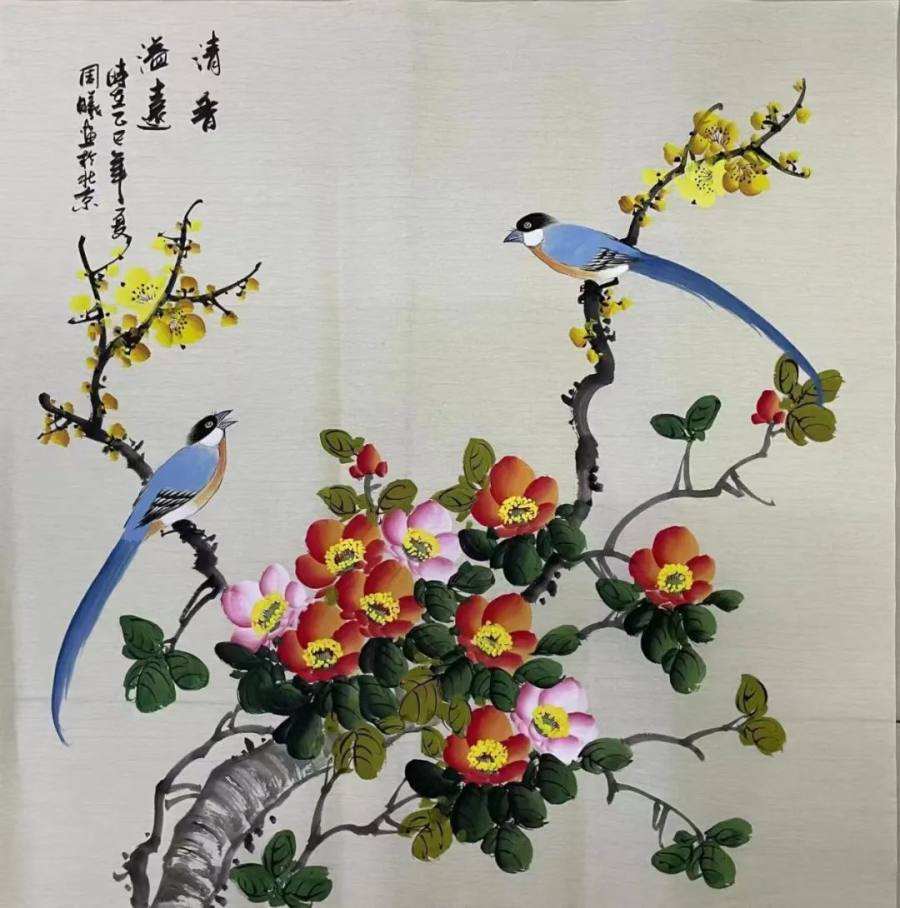 清香
溢远
时在乙巳年夏
周曦画於北京